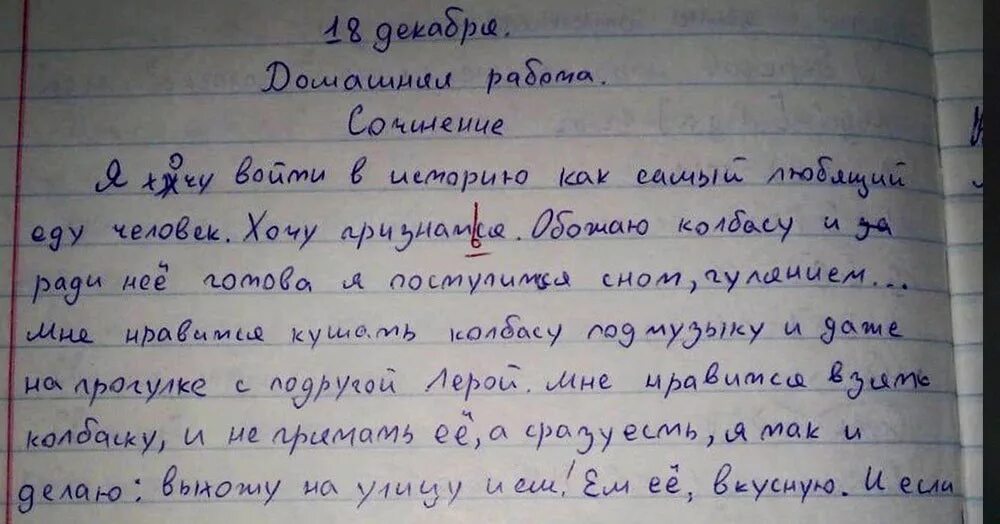 18 декабря.
Домашняя работа.
Сочинение
Я хочу войти в историю как самый любящий
еду человек. Хочу признаться. Обожаю колбасу и
ради неё готова я поступится сном, гулянием...
Мне нравится кушать колбасу под музыку и даже
на прогулке с подругой Лерой. Мне нравится взять
колбаску, и не прятать её, а сразу есть, я так и
делаю: выхожу на улицу и ем! Ем её, вкусную. И если